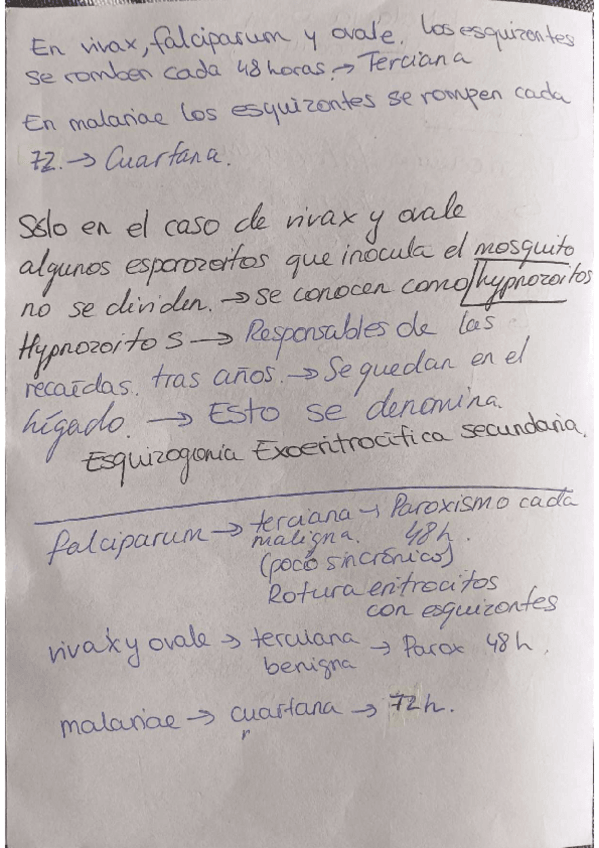 En vivax, falciparum y ovale. los esquizontes
se romben cada 48 horas. → Terciana
En malariae los esquizontes se rompen cada
72. → Cuartana.
Sólo en el caso de vivax y ovale
algunos esporozoitos que inocula el mosquito
no se dividen. → se conocen como hypnozoitos
Hypnozoitos → Responsables de las
recaídas. tras años. → Se quedan en el
hígado. → Esto se denomina.
Esquizogonía Exoeritrocítica secundaria.
falciparum → terciana → Paroxismo cada
maligna. 48h.
(poco sincrónico)
Rotura eritrocitos
con esquizontes
vivax y ovale → terciana → Parox 48h.
benigna
malariae → cuartana → 72h.
r